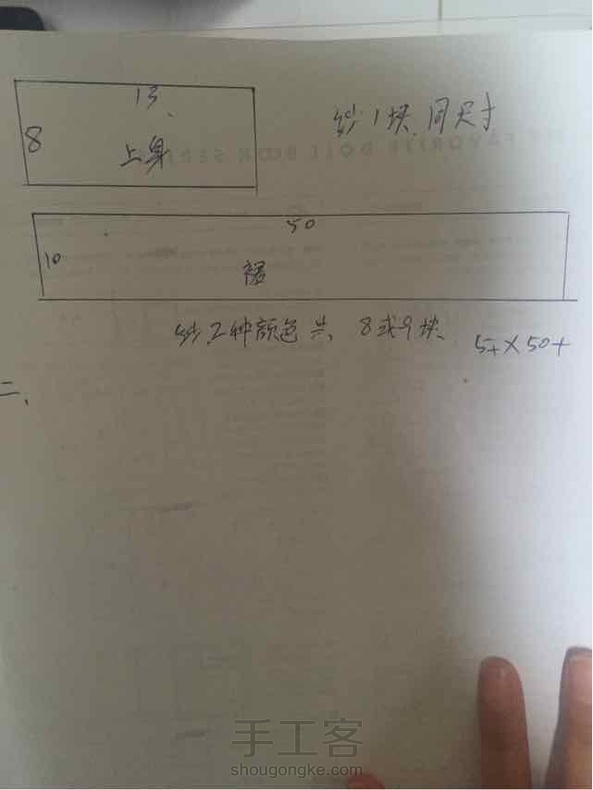 13、
8
上身
纱1块、同尺寸
50
10
裙
纱2种颜色共、8或9块、
5+×50+
二、
手工客
shougongke.com